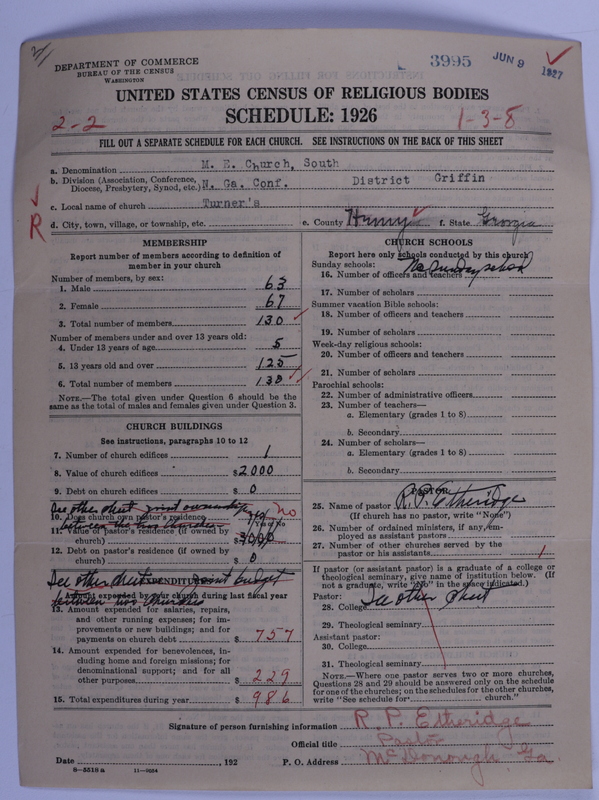 2/
DEPARTMENT OF COMMERCE
BUREAU OF THE CENSUS
WASHINGTON
3995 JUN 9 1927
UNITED STATES CENSUS OF RELIGIOUS BODIES
SCHEDULE: 1926
2-2 1-3-8
FILL OUT A SEPARATE SCHEDULE FOR EACH CHURCH. SEE INSTRUCTIONS ON THE BACK OF THIS SHEET
a. Denomination M. E. Church, South
b. Division (Association, Conference, Diocese, Presbytery, Synod, etc.) N. Ga. Conf. District Griffin
c. Local name of church Turner's
R
d. City, town, village, or township, etc. e. County Henry f. State Georgia
MEMBERSHIP
Report number of members according to definition of
member in your church
Number of members, by sex:
1. Male 63
2. Female 67
3. Total number of members 130
Number of members under and over 13 years old:
4. Under 13 years of age 5
5. 13 years old and over 125
6. Total number of members 130
NOTE.—The total given under Question 6 should be
same as the total of males and females given under Question 3.
CHURCH BUILDINGS
See instructions, paragraphs 10 to 12
7. Number of church edifices 1
8. Value of church edifices $ 2000
9. Debt on church edifices $ 0
See other sheet joint ownership
between two churches
10. Does church own pastor's residence no
11. Value of pastor's residence (if owned by
church) $ 3000
12. Debt on pastor's residence (if owned by
church) $ 0
See other sheet joint budget
between two churches
EXPENDITURES
Amount expended by your church during last fiscal year
13. Amount expended for salaries, repairs,
and other running expenses; for im-
provements or new buildings; and for
payments on church debt $ 757
14. Amount expended for benevolences, in-
cluding home and foreign missions; for
denominational support; and for all
other purposes $ 229
15. Total expenditures during year $ 986
CHURCH SCHOOLS
Report here only schools conducted by this church
Sunday schools: No Sunday school
16. Number of officers and teachers
17. Number of scholars
Summer vacation Bible schools:
18. Number of officers and teachers
19. Number of scholars
Week-day religious schools:
20. Number of officers and teachers
21. Number of scholars
Parochial schools:
22. Number of administrative officers
23. Number of teachers—
a. Elementary (grades 1 to 8)
b. Secondary
24. Number of scholars—
a. Elementary (grades 1 to 8)
b. Secondary
PASTOR
25. Name of pastor R. P. Etheridge
(If church has no pastor, write "None")
26. Number of ordained ministers, if any, em-
ployed as assistant pastors
27. Number of other churches served by the
pastor or his assistants 1
If pastor (or assistant pastor) is a graduate of a college or
theological seminary, give name of institution below. (If
not a graduate, write "No" in the place indicated.)
Pastor: See other sheet
28. College
29. Theological seminary
Assistant pastor:
30. College
31. Theological seminary
NOTE.—Where one pastor serves two or more churches,
Questions 28 and 29 should be answered only on the schedule
for one of the churches; on the schedules for the other churches,
write "See schedule for church."
Signature of person furnishing information R. P. Etheridge
Official title Pastor
Date , 192 P. O. Address McDonough Ga
8-5518 a 11-9604